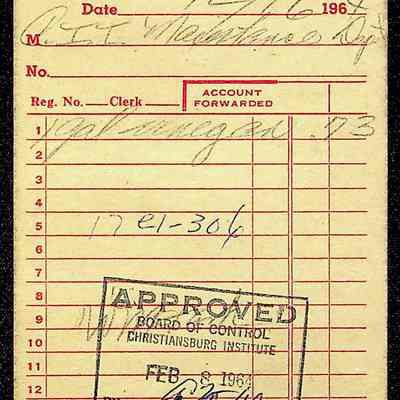 Date 196
M C. I. I. Maintenance Dept
No.
Reg. No. Clerk ACCOUNT FORWARDED
1 1 gal vinegar .73
2
3
4
5 17 e1-306
6
7
8
9
10
11
12
APPROVED
BOARD OF CONTROL
CHRISTIANSBURG INSTITUTE
FEB 8 1964